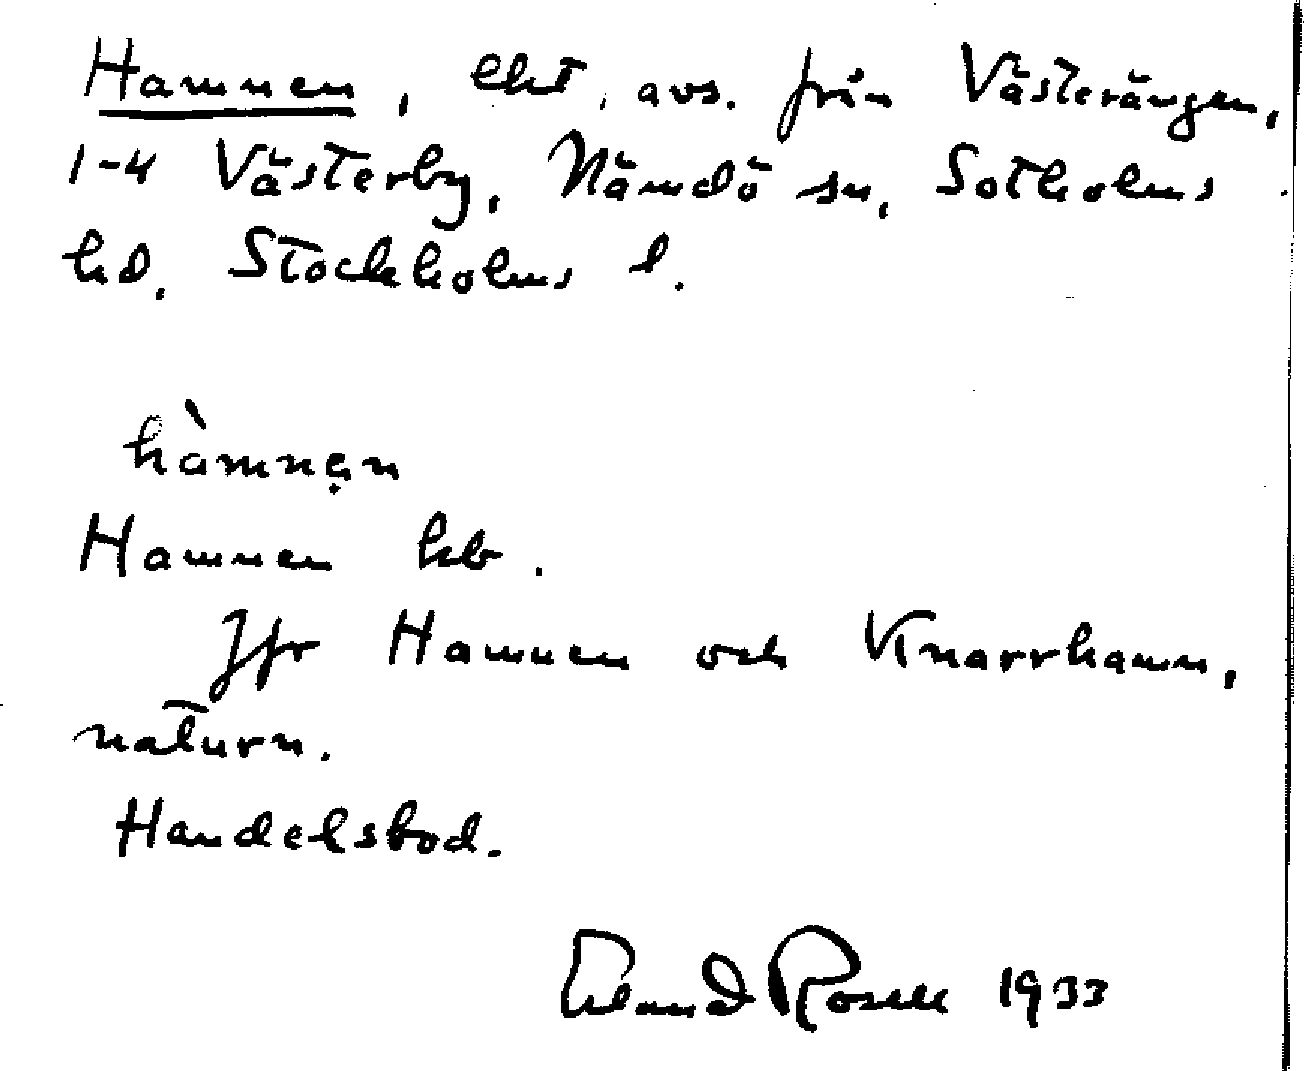 Hamnen, lht, avs. från Västerängen,
1-4 Västerby, Nämdö sn, Sotholms
hd. Stockholms l.
hàmnẹn
Hamnen kb.
Jfr Hamnen och Knarrhamn,
naturn.
Handelsbod.
Erland Rosell 1933